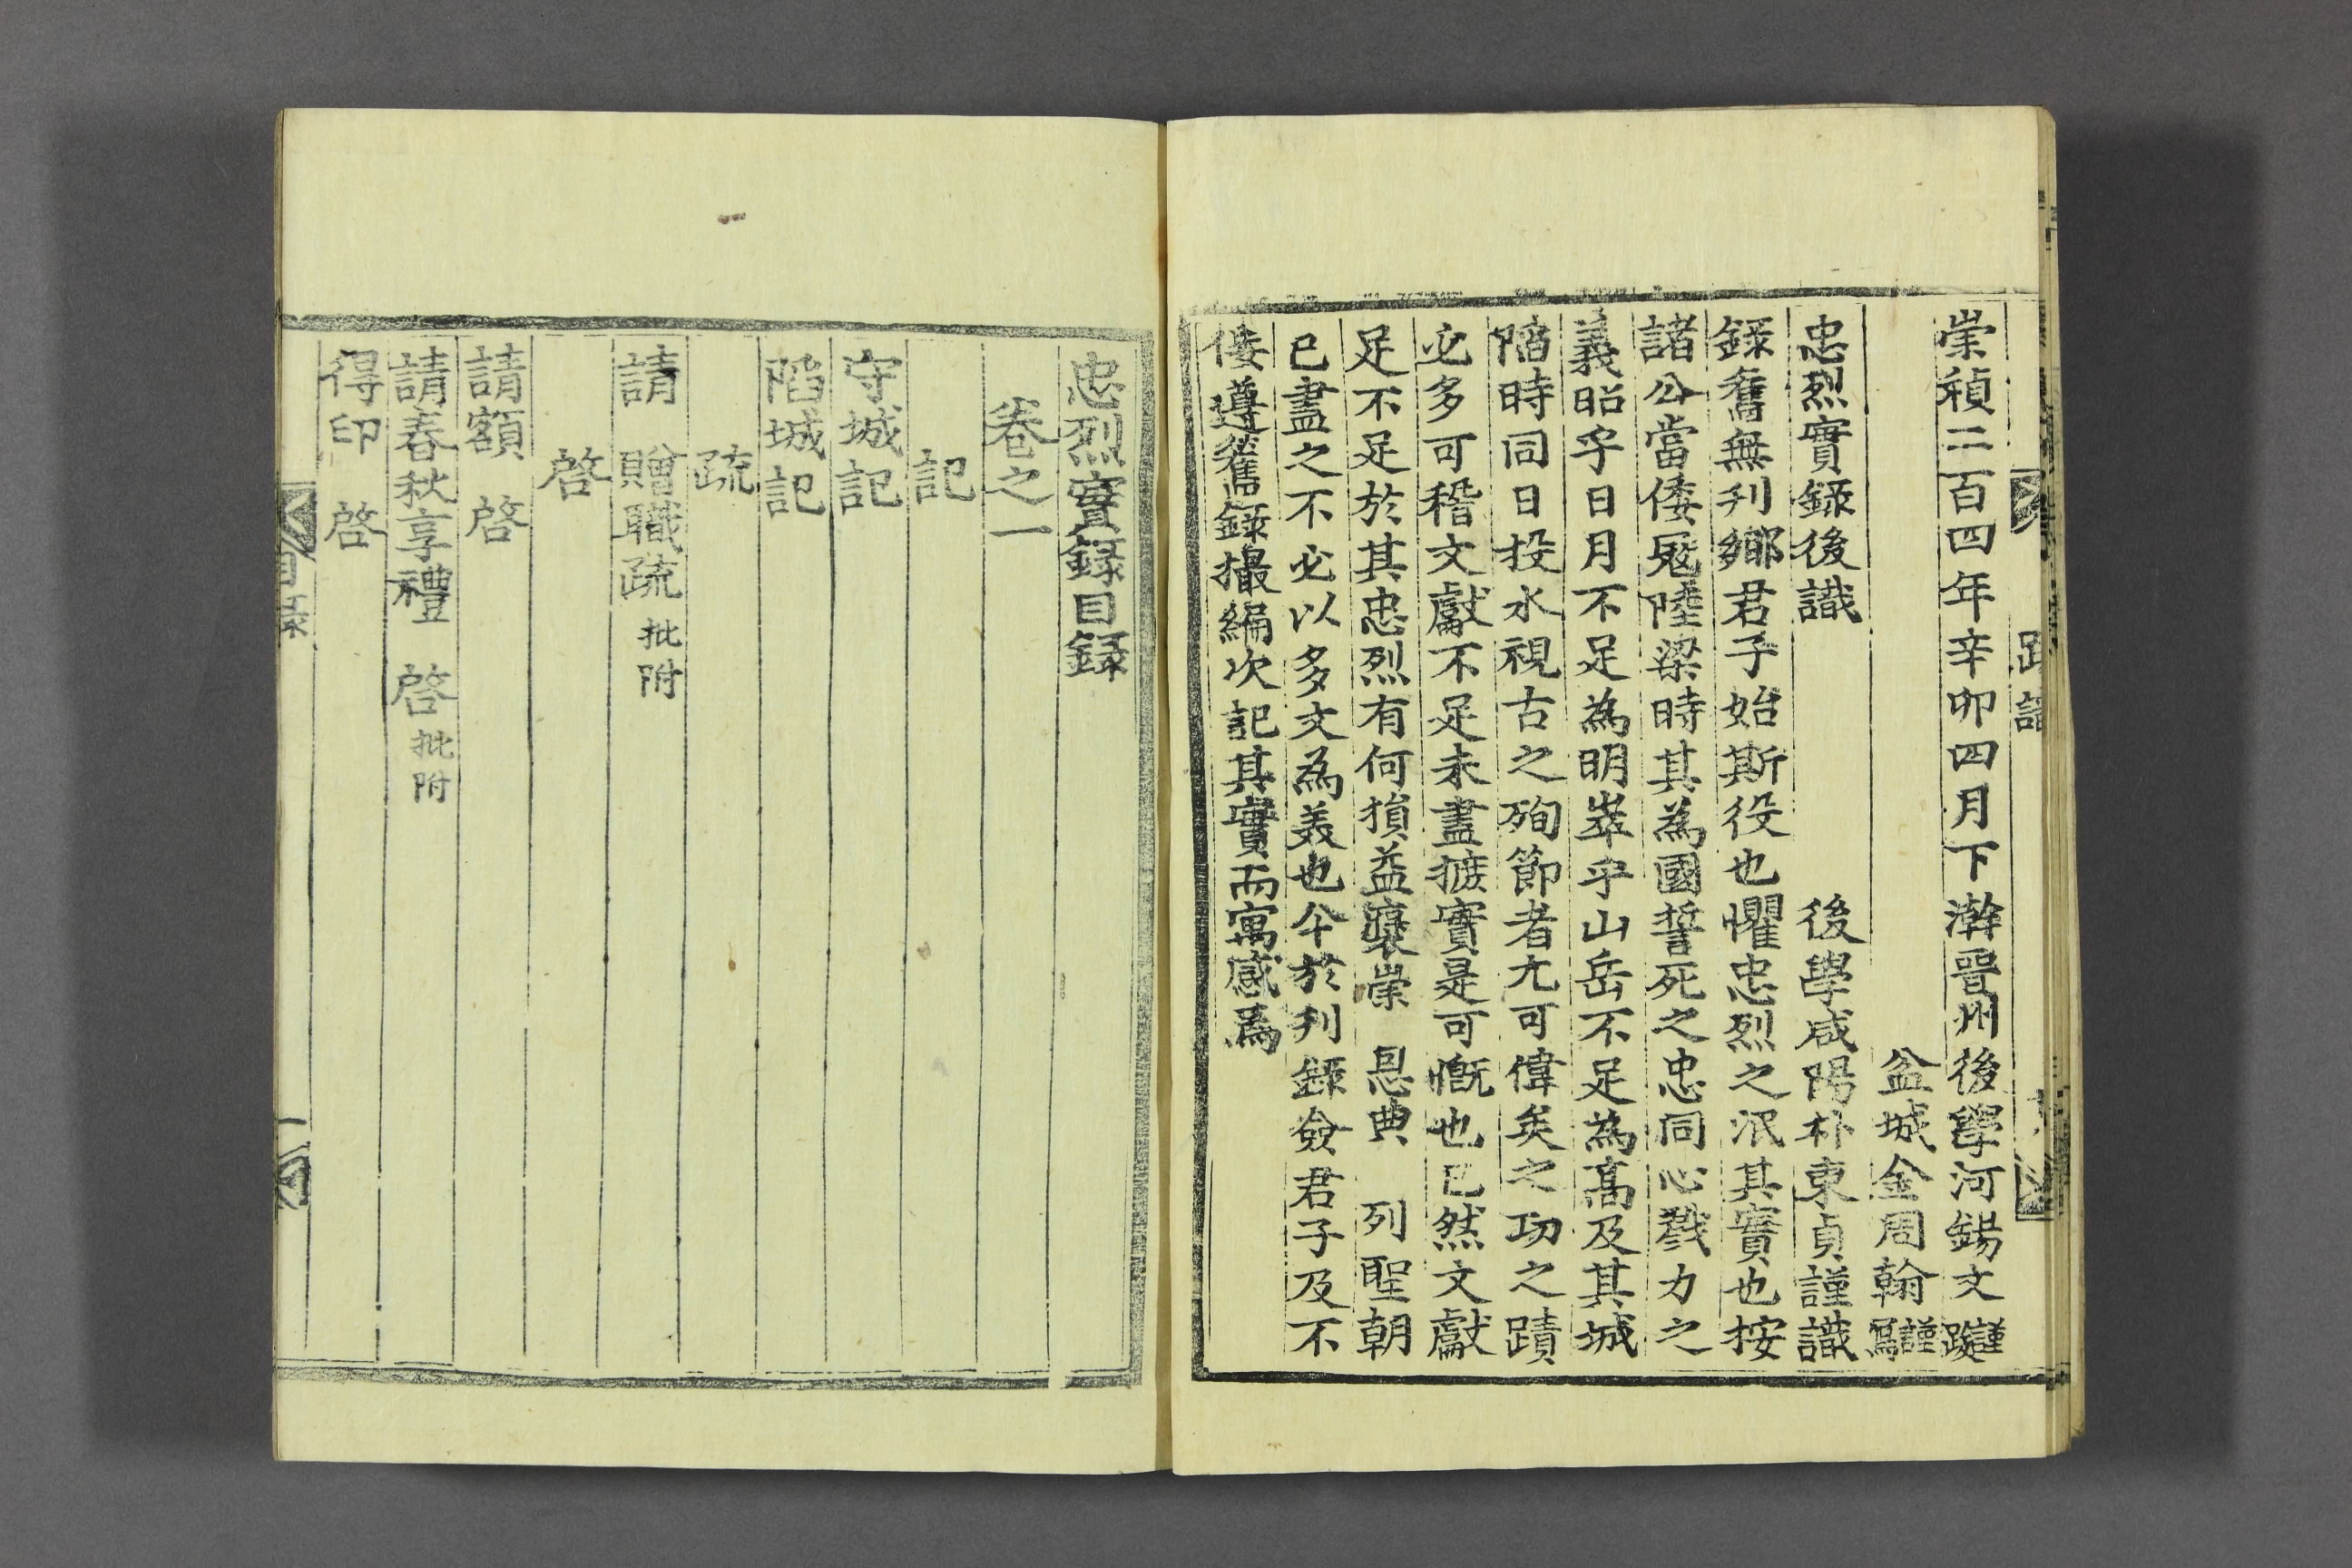 崇禎二百四年辛卯四月下澣晉州後學河錫文謹跋
盆城金周翰謹寫
忠烈實錄後識 後學咸陽朴東貞謹識
錄舊無刋鄉君子始斯役也懼忠烈之泯其實也按
諸公當倭冦陸梁時其為國誓死之忠同心戮力之
義昭乎日月不足為明崒乎山岳不足為高及其城
陷時同日投水視古之殉節者尤可偉矣之功之蹟
必多可稽文獻不足未盡摭實是可慨也已然文獻
足不足於其忠烈有何損益褒崇 恩典 列聖朝
已盡之不必以多文為美也今於刋錄僉君子及不
倭遵舊錄撮編次記其實而寓感爲
跋
忠烈實録目録
卷之一
記
守城記
陷城記
疏
請 贈職疏批附
啓
請額 啓
請春秋享禮 啓批附
得印 啓
目录
一